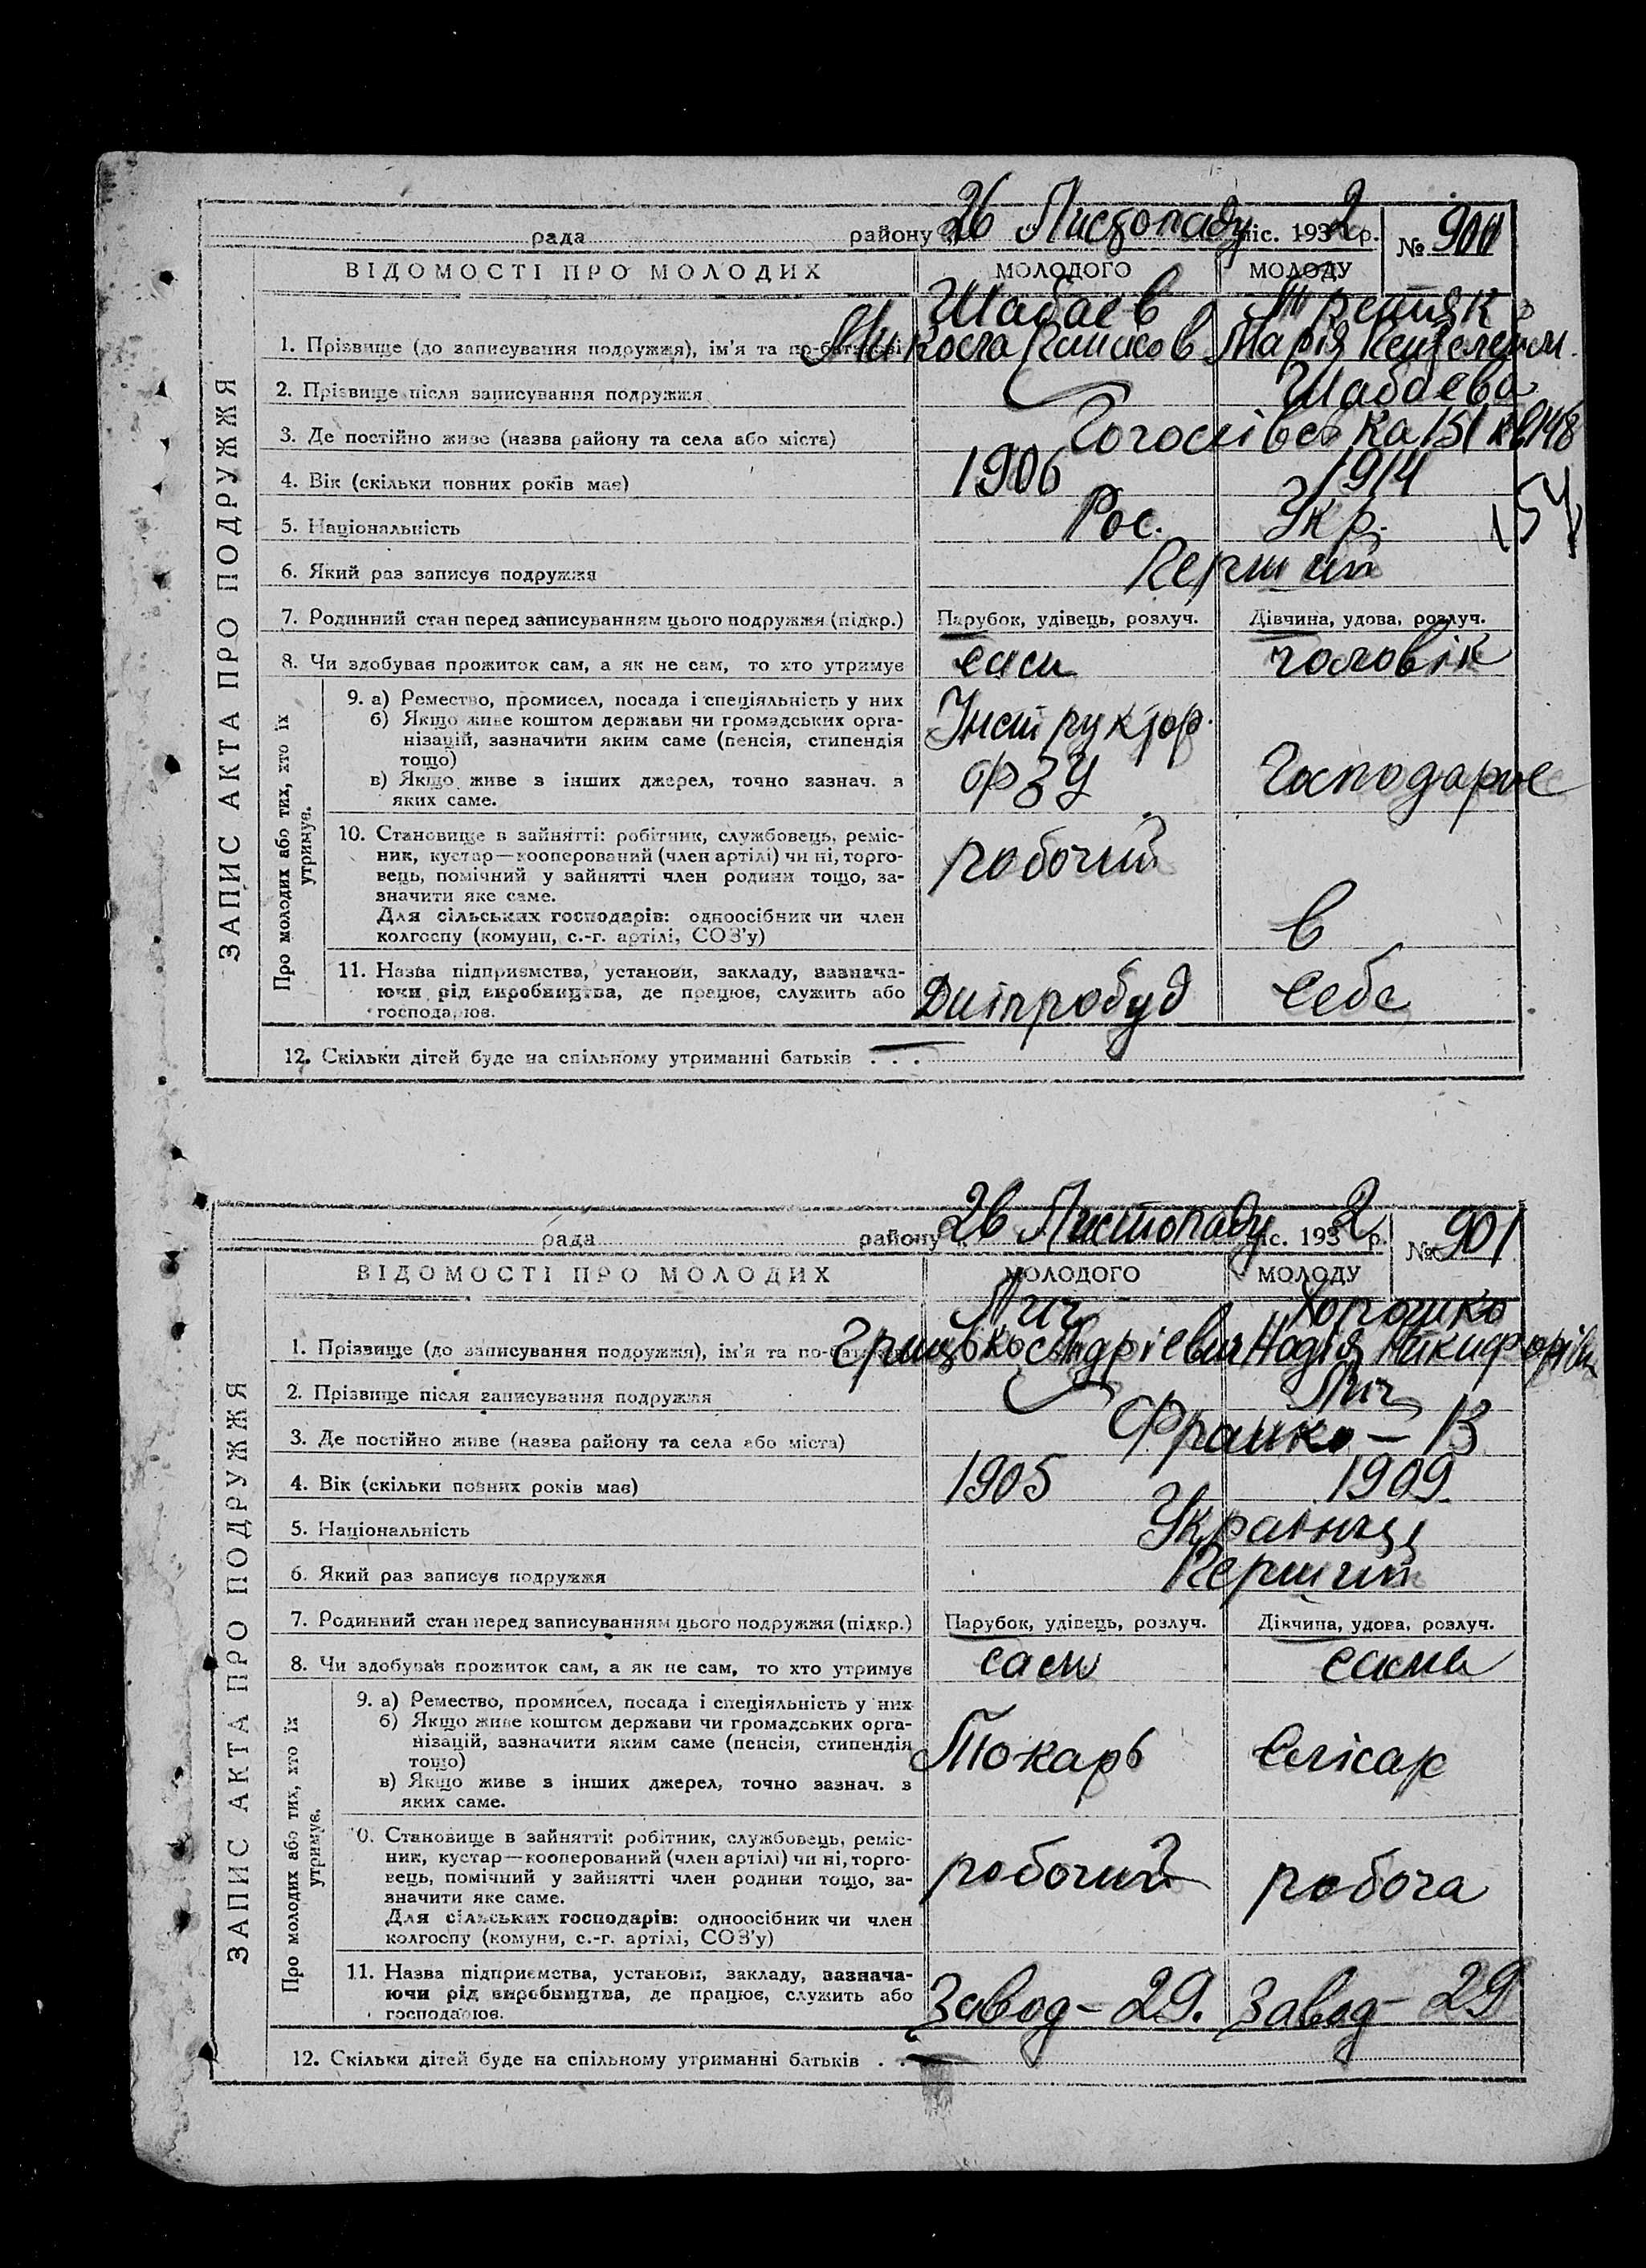 рада району „26 Листопаду міс. 1932 р. № 900
ВІДОМОСТІ ПРО МОЛОДИХ МОЛОДОГО МОЛОДУ
Шабаєв Третяк
1. Прізвище (до записування подружжя), ім'я та по-батькові Микола Марія
2. Прізвище після записування подружжя Шабаєва
3. Де постійно живе (назва району та села або міста) 151
4. Вік (скільки повних років має) 1906 1914
154
5. Національність Рос. Укр.
6. Який раз записує подружжя Перший
7. Родинний стан перед записуванням цього подружжя (підкр.) Парубок, удівець, розлуч. Дівчина, удова, розлуч.
8. Чи здобував прожиток сам, а як не сам, то хто утримує сам чоловік
ЗАПИС АКТА ПРО ПОДРУЖЖЯ
Про молодих або тих, хто їх утримує.
9. а) Ремество, промисел, посада і спеціяльність у них
б) Якщо живе коштом держави чи громадських орга-
нізацій, зазначити яким саме (пенсія, стипендія
тощо)
в) Якщо живе з інших джерел, точно зазнач. з
яких саме.
Інструктор
ФЗУ Господарює
10. Становище в зайнятті: робітник, службовець, реміс-
ник, кустар—кооперований (член артілі) чи ні, торго-
вець, помічний у зайнятті член родини тощо, за-
значити яке саме.
Для сільських господарів: одноосібник чи член
колгоспу (комуни, с.-г. артілі, СОЗ'у)
робочий
в
11. Назва підприємства, установи, закладу, зазнача-
ючи рід виробництва, де працює, служить або
господарює.
Дніпробуд себе
12. Скільки дітей буде на спільному утриманні батьків . . . —
рада району „26 Листопаду міс. 1932 р. № 901
ВІДОМОСТІ ПРО МОЛОДИХ МОЛОДОГО МОЛОДУ
Лич Хорошко
1. Прізвище (до записування подружжя), ім'я та по-батькові Грицько Андрієвич Надія Никифорівн
2. Прізвище після записування подружжя Лич
3. Де постійно живе (назва району та села або міста) Франко – 13
4. Вік (скільки повних років має) 1905 1909
5. Національність Українці
6. Який раз записує подружжя Перший
7. Родинний стан перед записуванням цього подружжя (підкр.) Парубок, удівець, розлуч. Дівчина, удова, розлуч.
8. Чи здобував прожиток сам, а як не сам, то хто утримує сам сама
ЗАПИС АКТА ПРО ПОДРУЖЖЯ
Про молодих або тих, хто їх утримує.
9. а) Ремество, промисел, посада і спеціяльність у них
б) Якщо живе коштом держави чи громадських орга-
нізацій, зазначити яким саме (пенсія, стипендія
тощо)
в) Якщо живе з інших джерел, точно зазнач. з
яких саме.
Токарь Слісар
10. Становище в зайнятті: робітник, службовець, реміс-
ник, кустар—кооперований (член артілі) чи ні, торго-
вець, помічний у зайнятті член родини тощо, за-
значити яке саме.
Для сільських господарів: одноосібник чи член
колгоспу (комуни, с.-г. артілі, СОЗ'у)
робочий робоча
11. Назва підприємства, установи, закладу, зазнача-
ючи рід виробництва, де працює, служить або
господарює.
Завод – 29. Завод – 29
12. Скільки дітей буде на спільному утриманні батьків . . —